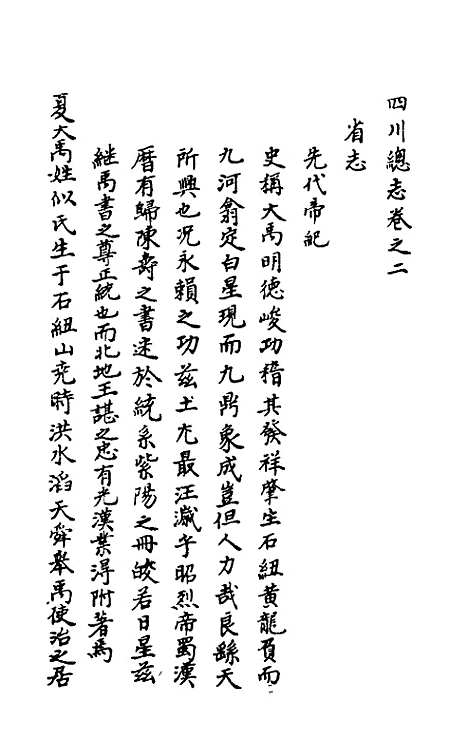 四川總志卷之二
省志
先代帝紀
史稱大禹明德峻功稽其發祥肇生石紐黃龍負而
九河翕定白星現而九鼎象成豈但人力哉良繇天
所興也况永賴之功茲土尤最汪濊乎昭烈帝蜀漢
曆有歸陳壽之書迷於統系紫陽之冊皎若日星茲
繼禹書之尊正統也而北地王諶之忠有光漢業淂附著焉
夏大禹姓姒氏生于石紐山堯時洪水滔天舜舉禹使治之居